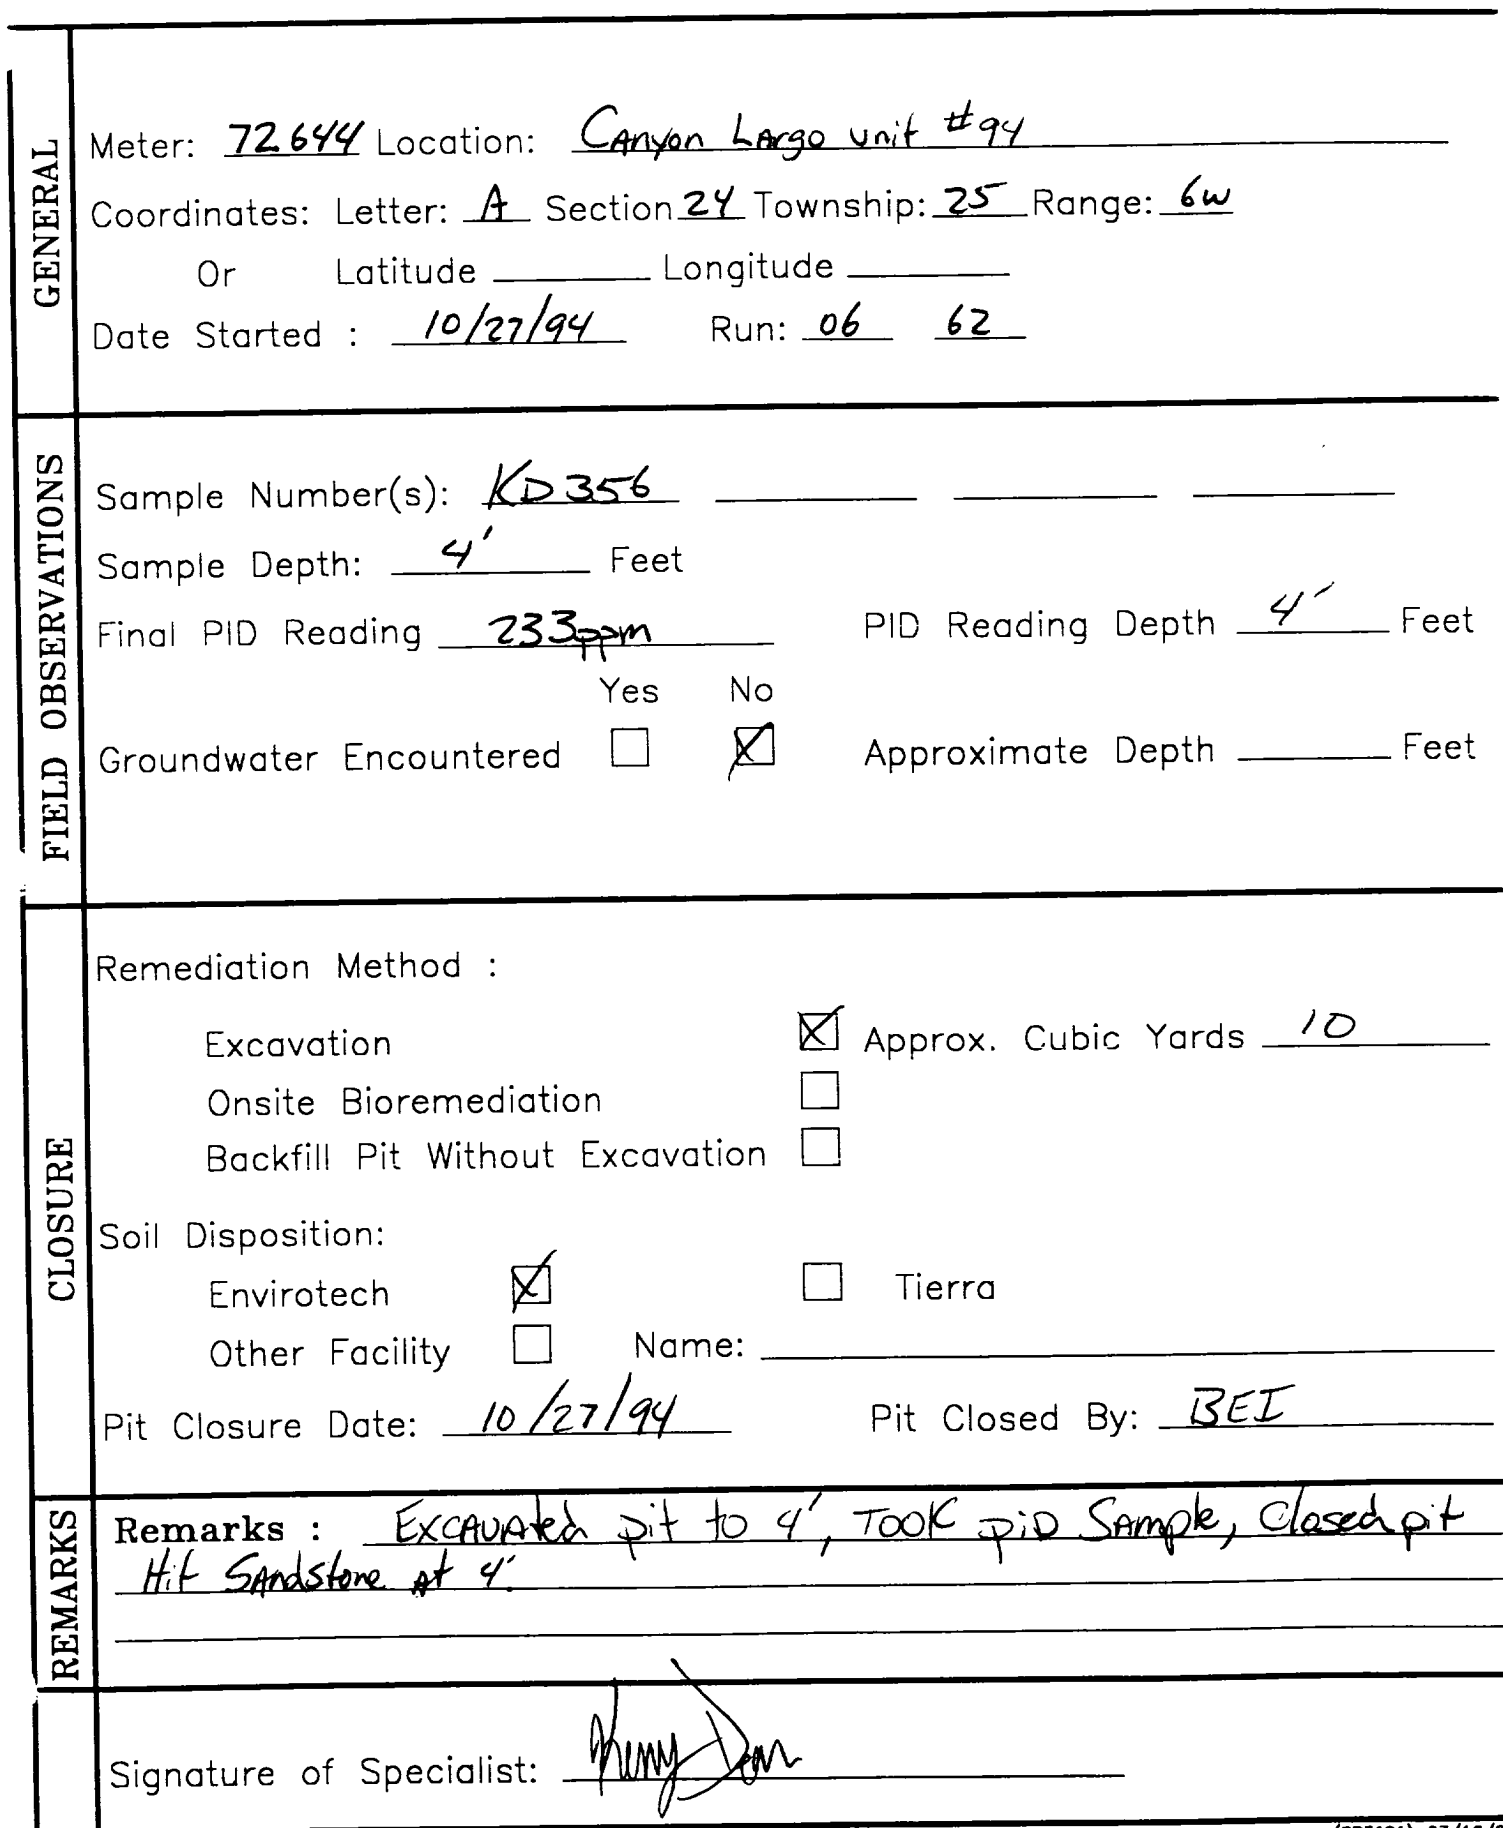 GENERAL
Meter: 72644 Location: Canyon Largo unit #94
Coordinates: Letter: A Section 24 Township: 25 Range: 6w
Or Latitude Longitude
Date Started : 10/27/94 Run: 06 62
FIELD OBSERVATIONS
Sample Number(s): KD356
Sample Depth: 4' Feet
Final PID Reading 233ppm PID Reading Depth 4' Feet
Yes No
Groundwater Encountered Approximate Depth Feet
CLOSURE
Remediation Method :
Excavation Approx. Cubic Yards 10
Onsite Bioremediation
Backfill Pit Without Excavation
Soil Disposition:
Envirotech Tierra
Other Facility Name:
Pit Closure Date: 10/27/94 Pit Closed By: BEI
REMARKS
Remarks : Excavated pit to 4', Took PID Sample, Closed pit
Hit Sandstone at 4'.
Signature of Specialist: